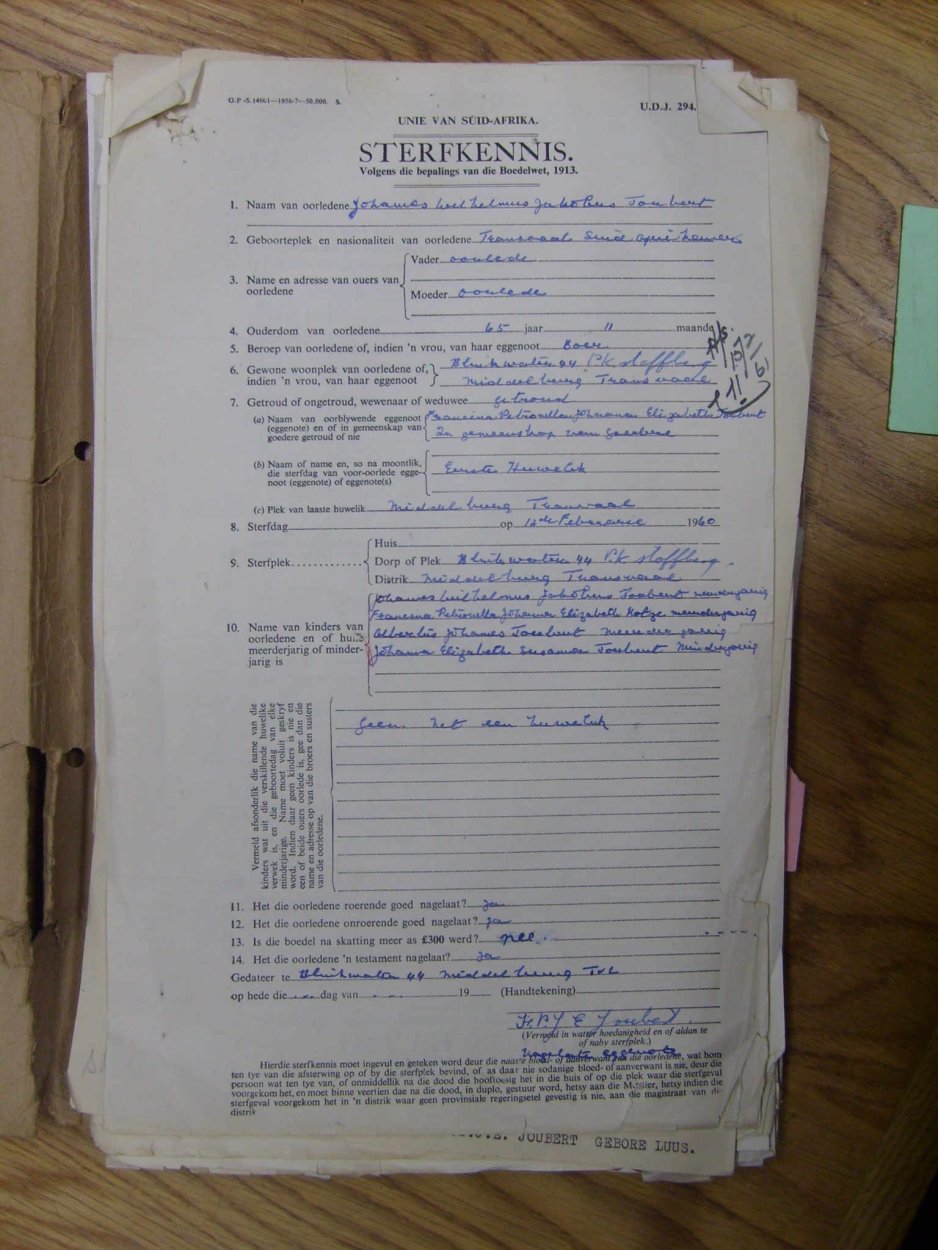 G.P.-S.14861—1956-7—50,000. S.
U.D.J. 294.
UNIE VAN SUID-AFRIKA.
STERFKENNIS.
Volgens die bepalings van die Boedelwet, 1913.
1. Naam van oorledene Johannes Wilhelmus Jakobus Joubert
2. Geboorteplek en nasionaliteit van oorledene Transvaal Suid
3. Name en adresse van ouers van oorledene
Vader oorlede
Moeder oorlede
4. Ouderdom van oorledene 65 jaar 11 maande
5. Beroep van oorledene of, indien 'n vrou, van haar eggenoot Boer
6. Gewone woonplek van oorledene of, indien 'n vrou, van haar eggenoot
Blinkwater 44 P/K Stoffberg
Middelburg Transvaal
7. Getroud of ongetroud, wewenaar of weduwee getroud
(a) Naam van oorblywende eggenoot (eggenote) en of in gemeenskap van goedere getroud of nie
Francina Petronella Johanna Elizabeth Joubert
In gemeenskap van Goedere
(b) Naam of name en, so na moontlik, die sterfdag van voor-oorlede eggenoot (eggenote) of eggenote(s)
Eerste Huwelik
(c) Plek van laaste huwelik Middelburg Transvaal
8. Sterfdag op 12de Februarie 1960
9. Sterfplek
Huis
Dorp of Plek Blinkwater 44 P.K Stoffberg
Distrik Middelburg Transvaal
10. Name van kinders van oorledene en of hulle meerderjarig of minderjarig is
Johannes Wilhelmus Jakobus Joubert
Francina Petronella Johanna Elizabeth Kotze
Albertus Johannes Joubert
Johanna Elizabeth Susanna Joubert Minderjarig
Vermeld afsonderlik die name van die
kinders wat uit die verskillende huwelike
verwek is, en die geboortedag van elke
minderjarige. Name moet voluit geskryf
word. Indien daar geen kinders is nie en
een of beide ouers oorlede is, gee dan die
name en adresse op van die broers en susters
van die oorledene.
Geen net een huwelik
11. Het die oorledene roerende goed nagelaat? Ja
12. Het die oorledene onroerende goed nagelaat? Ja
13. Is die boedel na skatting meer as £300 werd? nee
14. Het die oorledene 'n testament nagelaat? Ja
Gedateer te Blinkwater 44 Middelburg Tvl
op hede die dag van 19 (Handtekening)
F.P.J E Joubert
(Vermeld in watter hoedanigheid en of aldan te
of naby sterfplek.)
Nagelate eggenote
Hierdie sterfkennis moet ingevul en geteken word deur die naaste bloed- of aanverwant van die oorledene, wat hom
ten tye van die afsterwing op of by die sterfplek bevind, of, as daar nie sodanige bloed- of aanverwant is nie, deur die
persoon wat ten tye van, of onmiddellik na die dood die hooftoesig het in die huis of op die plek waar die sterfgeval
voorgekom het, en moet binne veertien dae na die dood, in duplo, gestuur word, hetsy aan die Meester, hetsy indien die
sterfgeval voorgekom het in 'n distrik waar geen provinsiale regeringsetel gevestig is nie, aan die magistraat van die
distrik
JOUBERT GEBORE LUUS.